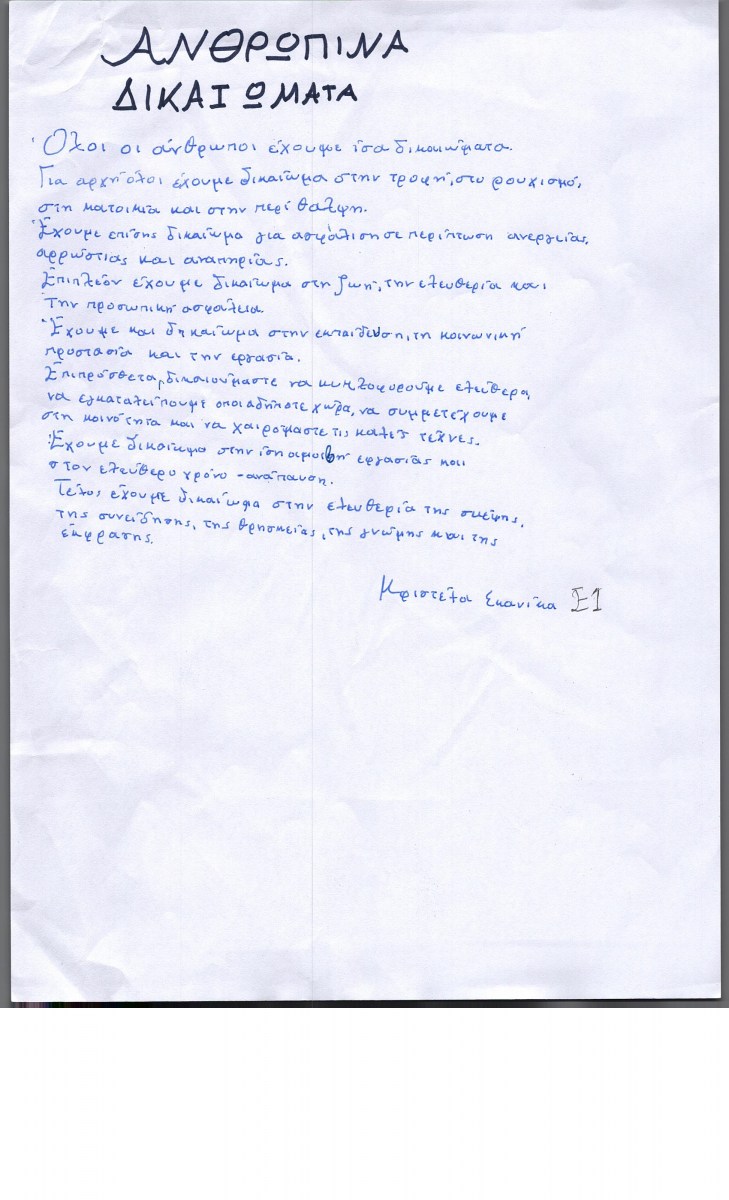 ΑΝΘΡΩΠΙΝΑ
ΔΙΚΑΙΩΜΑΤΑ
Όλοι οι άνθρωποι έχουμε ίσα δικαιώματα.
Για αρχή όλοι έχουμε δικαίωμα στην τροφή, στο ρουχισμό,
στη κατοικία και στην περίθαλψη.
Έχουμε επίσης δικαίωμα για ασφάλιση σε περίπτωση ανεργείας,
αρρώστιας και αναπηρίας.
Επιπλέον έχουμε δικαίωμα στη ζωή, την ελευθερία και
την προσωπική ασφάλεια.
Έχουμε και δηκαίωμα στην εκπαίδευση, τη κοινωνική
προστασία και την εργασία.
Επιπρόσθετα, δικαιούμαστε να κυκλοφορούμε ελεύθερα,
να εγκαταλείπουμε οποιαδήποτε χώρα, να συμμετέχουμε
στη κοινότητα και να χαιρόμαστε τις καλές τέχνες.
Έχουμε δικαίωμα στην ίση αμοιβή εργασίας και
στον ελεύθερο χρόνο - ανάπαυση.
Τέλος έχουμε δικαίωμα στην ελευθερία της σκέψης,
της συνείδησης, της θρησκείας, της γνώμης και της
έκφρασης.
Κριστέλα Σκανίκα Ε1